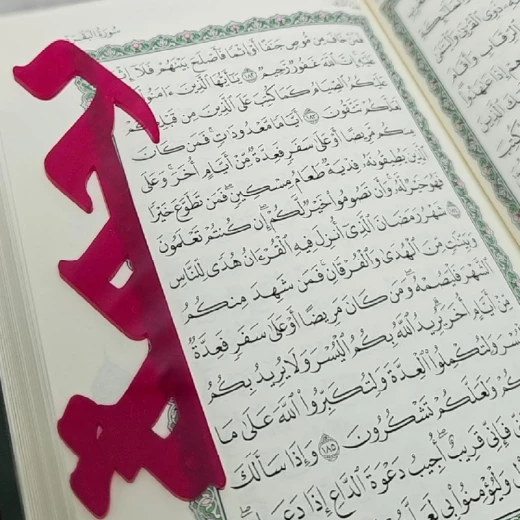 سُورَةُ البَقَرَةِ
فَمَنْ خَافَ مِن مُّوصٍ جَنَفًا أَوْ إِثْمًا فَأَصْلَحَ بَيْنَهُمْ فَلَآ إِثْمَ
إِنَّ ٱللَّهَ غَفُورٌ رَّحِيمٌ ١٨٢ يَٰٓأَيُّهَا ٱلَّذِينَ ءَامَنُوا۟
عَلَيْكُمُ ٱلصِّيَامُ كَمَا كُتِبَ عَلَى ٱلَّذِينَ مِن قَبْلِكُمْ
لَعَلَّكُمْ تَتَّقُونَ ١٨٣ أَيَّامًا مَّعْدُودَٰتٍ فَمَن كَانَ
مِنكُم مَّرِيضًا أَوْ عَلَىٰ سَفَرٍ فَعِدَّةٌ مِّنْ أَيَّامٍ أُخَرَ وَعَلَى
ٱلَّذِينَ يُطِيقُونَهُۥ فِدْيَةٌ طَعَامُ مِسْكِينٍ فَمَن تَطَوَّعَ خَيْرًا
فَهُوَ خَيْرٌ لَّهُۥ وَأَن تَصُومُوا۟ خَيْرٌ لَّكُمْ إِن كُنتُمْ تَعْلَمُونَ
شَهْرُ رَمَضَانَ ٱلَّذِىٓ أُنزِلَ فِيهِ ٱلْقُرْءَانُ هُدًى لِّلنَّاسِ
وَبَيِّنَٰتٍ مِّنَ ٱلْهُدَىٰ وَٱلْفُرْقَانِ فَمَن شَهِدَ مِنكُمُ
ٱلشَّهْرَ فَلْيَصُمْهُ وَمَن كَانَ مَرِيضًا أَوْ عَلَىٰ سَفَرٍ فَعِدَّةٌ
مِّنْ أَيَّامٍ أُخَرَ يُرِيدُ ٱللَّهُ بِكُمُ ٱلْيُسْرَ وَلَا يُرِيدُ بِكُمُ
ٱلْعُسْرَ وَلِتُكْمِلُوا۟ ٱلْعِدَّةَ وَلِتُكَبِّرُوا۟ ٱللَّهَ عَلَىٰ مَا
وَلَعَلَّكُمْ تَشْكُرُونَ ١٨٥ وَإِذَا سَأَلَكَ
فَإِنِّى قَرِيبٌ أُجِيبُ دَعْوَةَ ٱلدَّاعِ إِذَا دَعَانِ
وَلْيُؤْمِنُوا۟ بِى